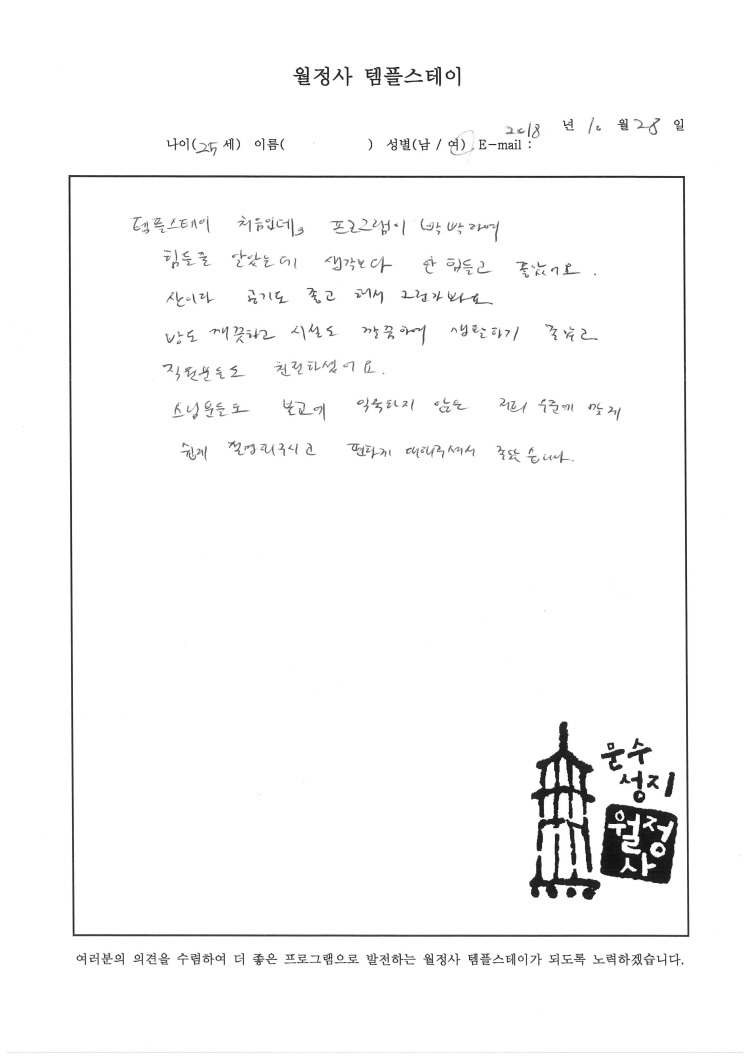 월정사 템플스테이
2018 년 10 월 28 일
나이(25세) 이름( ) 성별(남 / 여) E-mail :
템플스테이 처음인데, 프로그램이 빡빡하여
힘들줄 알았는데 생각보다 안 힘들고 좋았어요.
산이라 공기도 좋고 해서 그런가봐요
방도 깨끗하고 시설도 깔끔하여 생활하기 좋았고
직원분들도 친절하셨어요.
스님분들도 불교에 익숙하지 않은 저희 수준에 맞게
쉽게 설명해주시고 편하게 대해주셔서 좋았습니다.
문수
성지
월정
사
여러분의 의견을 수렴하여 더 좋은 프로그램으로 발전하는 월정사 템플스테이가 되도록 노력하겠습니다.